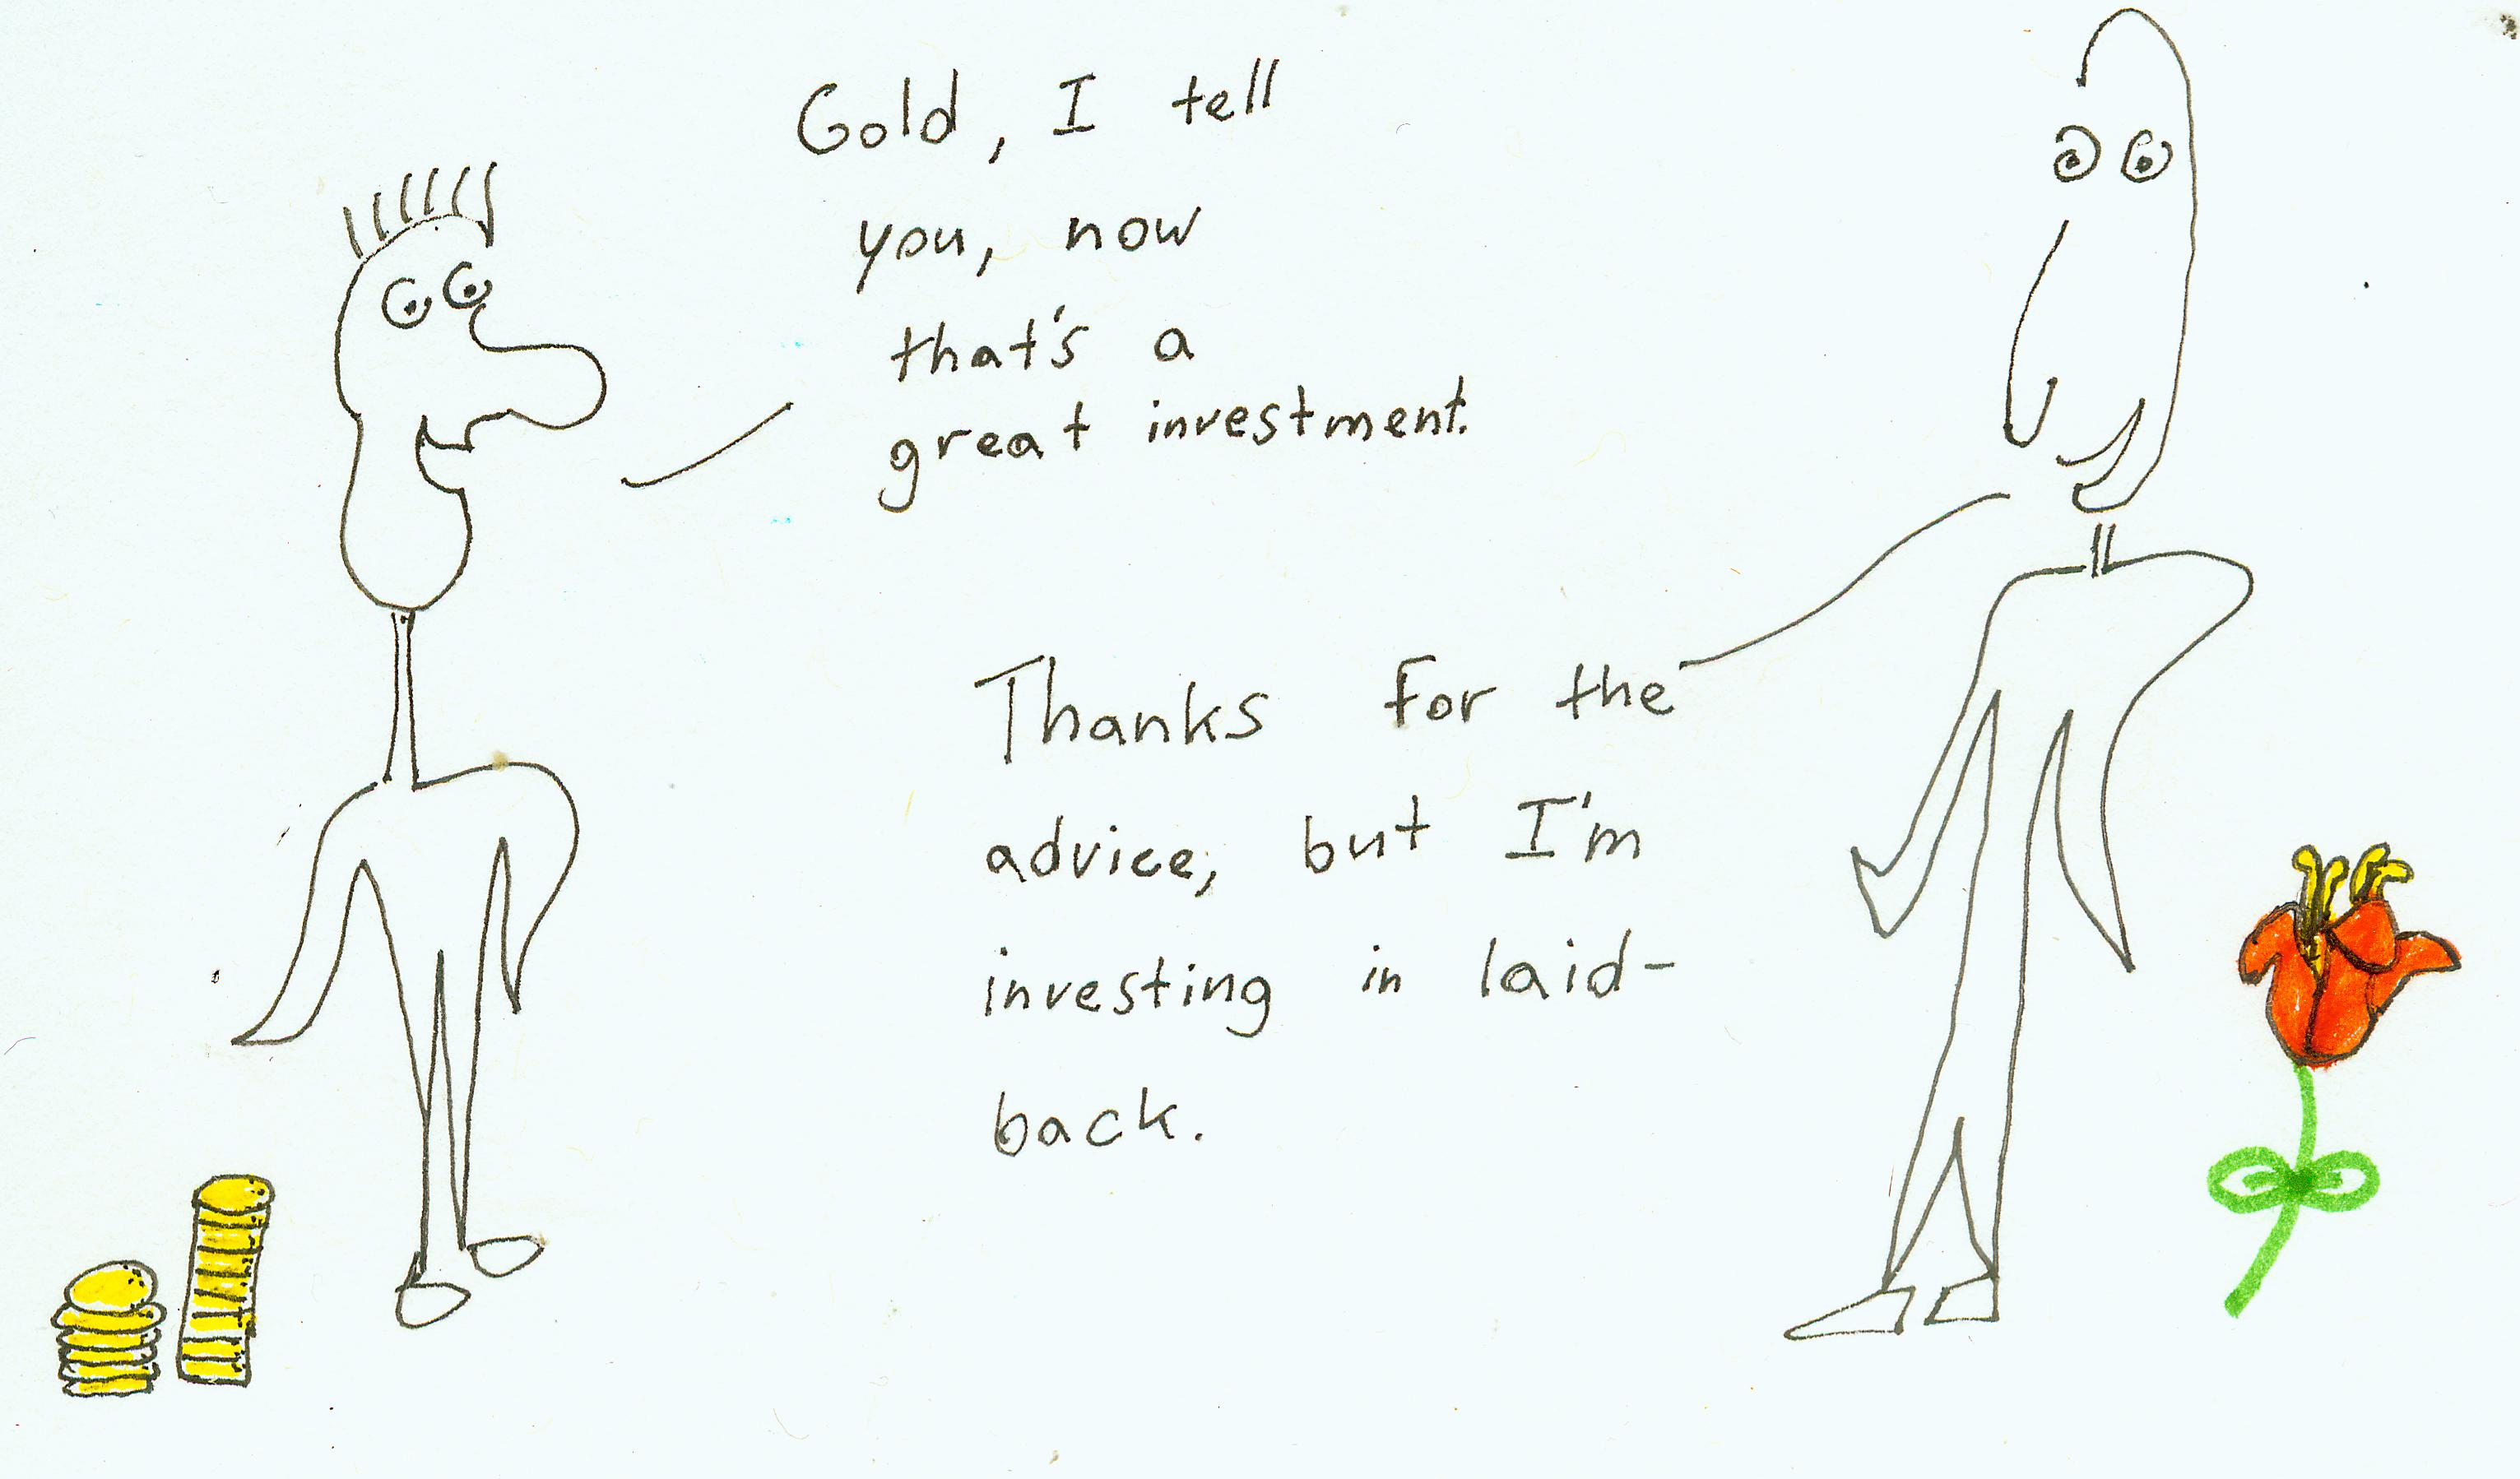 Gold, I tell
you, now
that's a
great investment.
Thanks for the
advice, but I'm
investing in laid-
back.